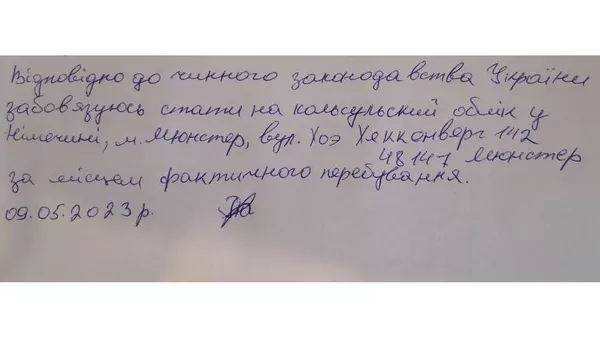 Відповідно до чинного законодавства України
забовязуюсь стати на кольсульский облік у
Німечині, м. Мюнстер, вул. Хоэ Хекконверг 142
48147 Мюнстер
за місцем фактичного перебування.
09.05.2023 р.